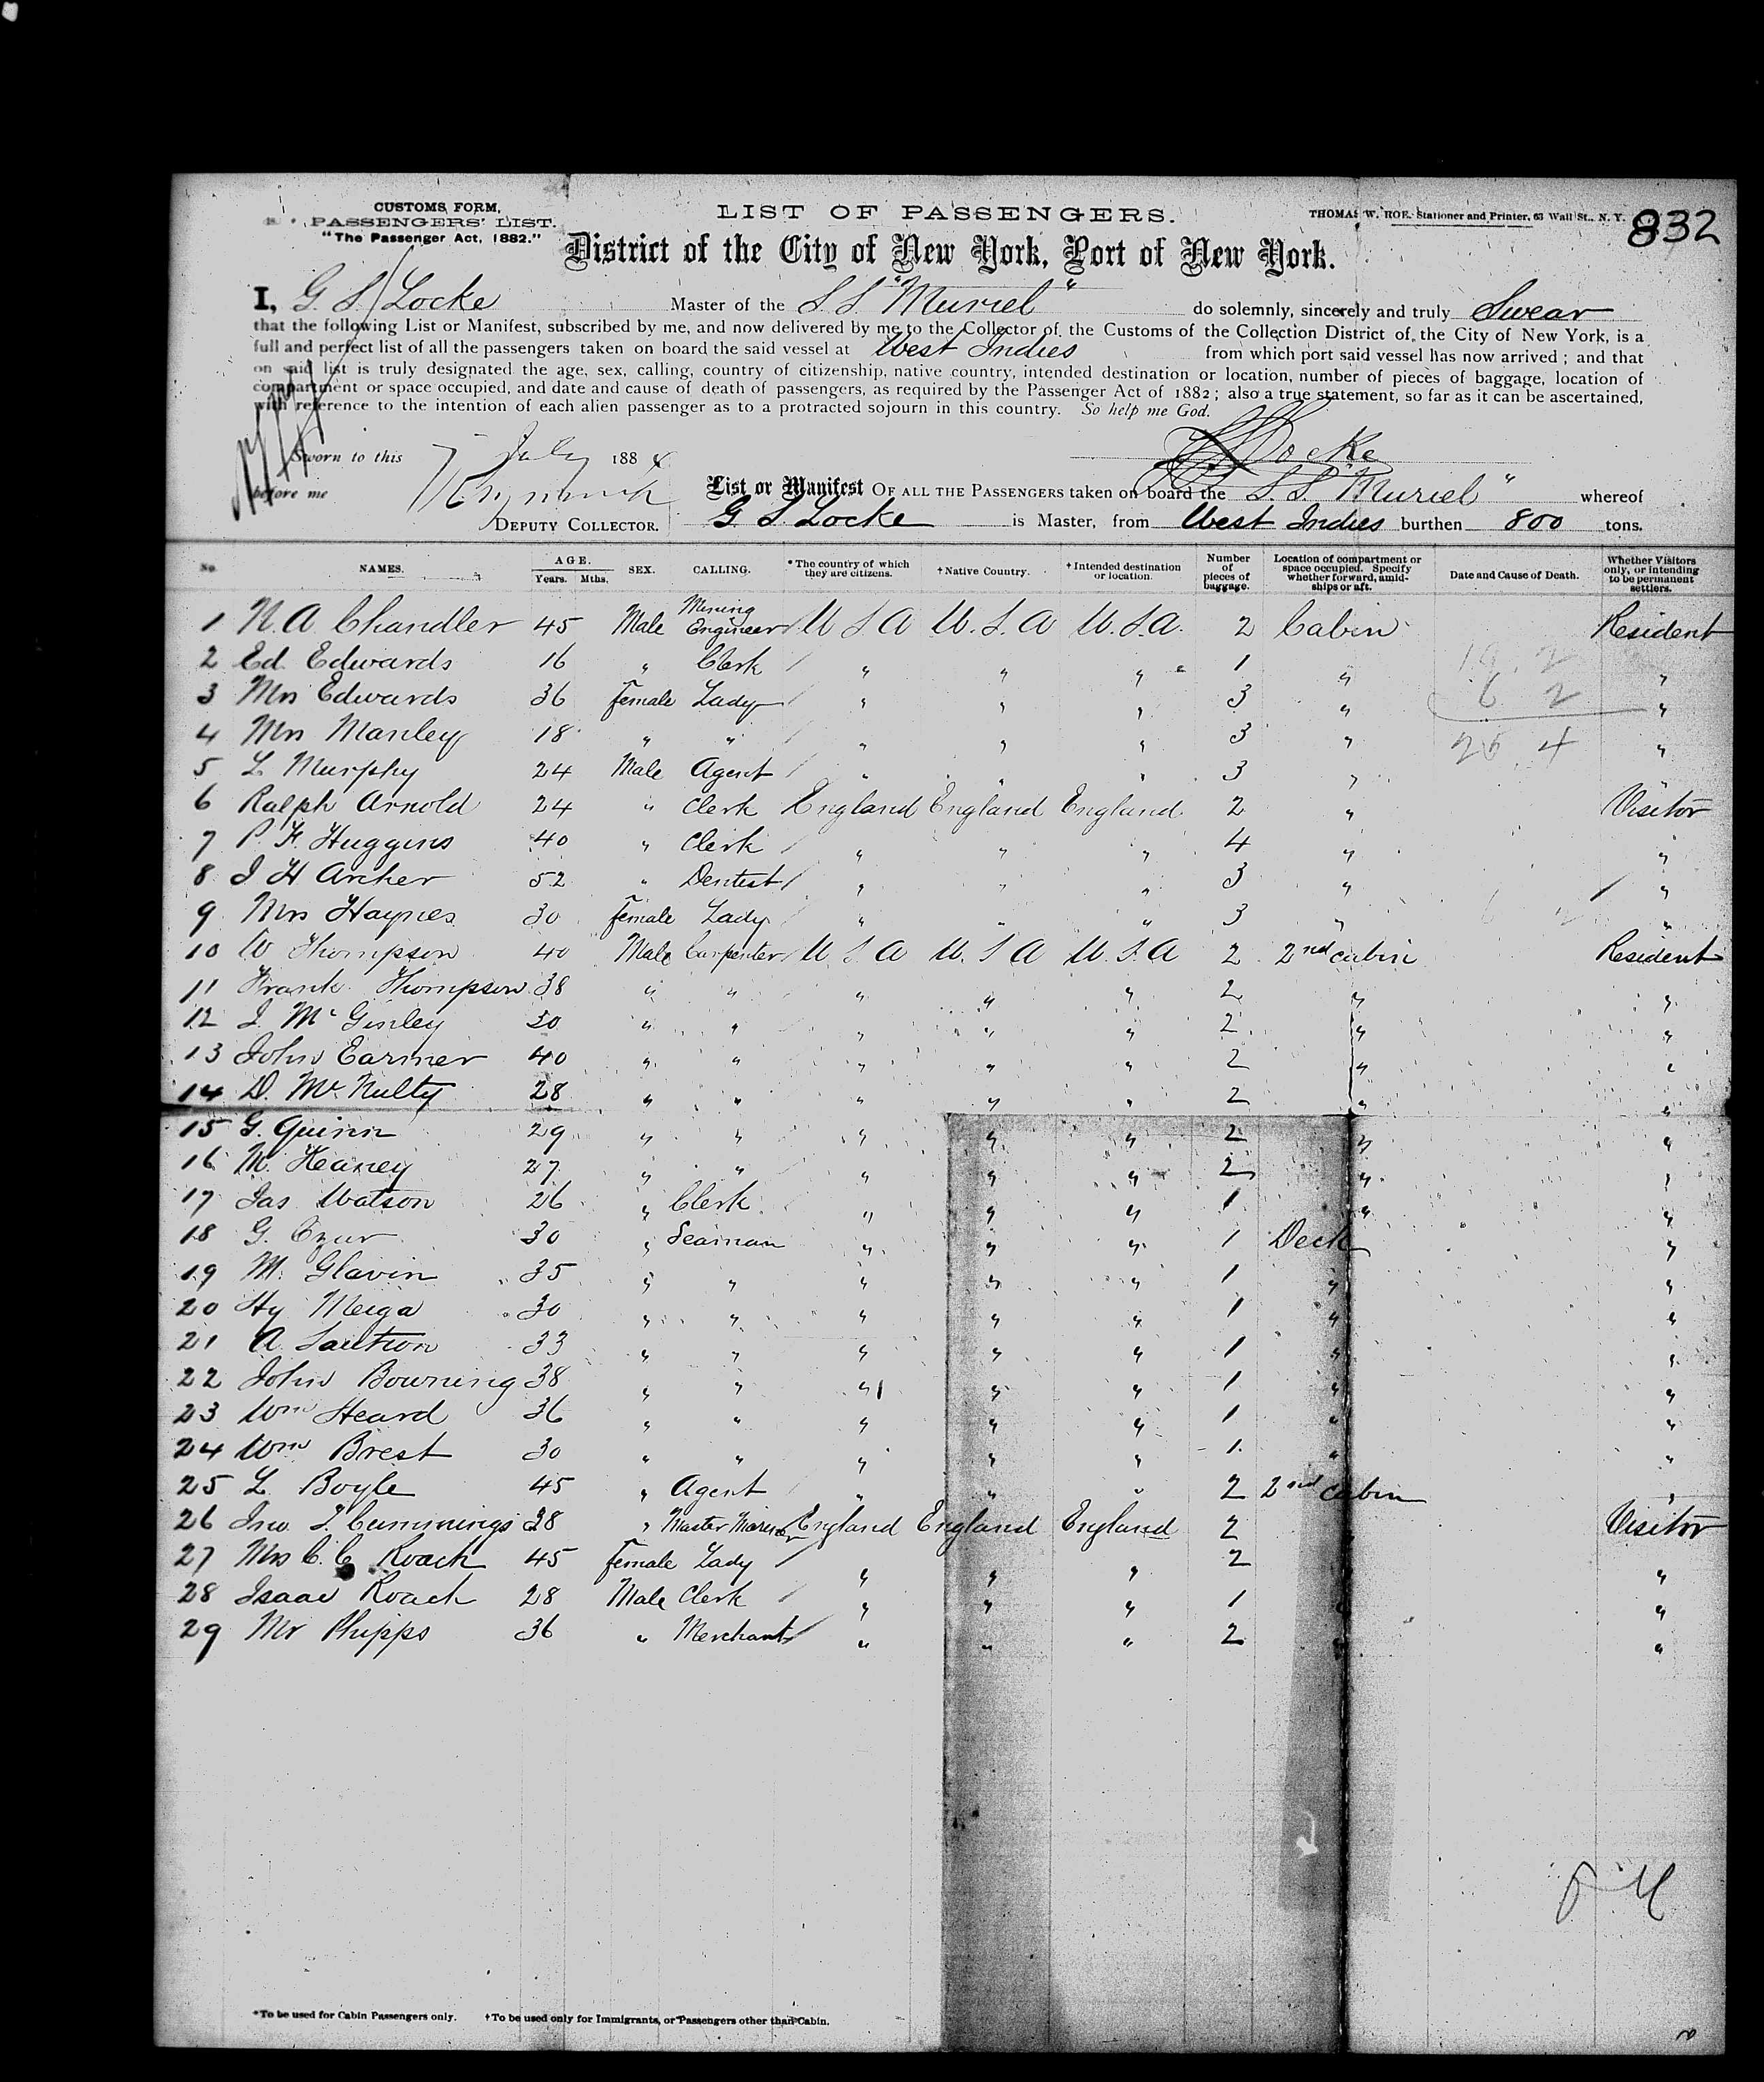 CUSTOMS FORM,
PASSENGERS' LIST.
"The Passenger Act, 1882."
LIST OF PASSENGERS.
THOMAS W. ROE. Stationer and Printer, 63 Wall St., N. Y.
832
District of the City of New York, Port of New York.
I, G. S. Locke Master of the S.S. "Muriel" do solemnly, sincerely and truly Swear
that the following List or Manifest, subscribed by me, and now delivered by me to the Collector of the Customs of the Collection District of the City of New York, is a
full and perfect list of all the passengers taken on board the said vessel at West Indies from which port said vessel has now arrived ; and that
on said list is truly designated the age, sex, calling, country of citizenship, native country, intended destination or location, number of pieces of baggage, location of
compartment or space occupied, and date and cause of death of passengers, as required by the Passenger Act of 1882 ; also a true statement, so far as it can be ascertained,
with reference to the intention of each alien passenger as to a protracted sojourn in this country. So help me God.
Sworn to this 7 July 1884
G S Locke
before me
List or Manifest OF ALL THE PASSENGERS taken on board the S.S. "Muriel" whereof
DEPUTY COLLECTOR. G. S. Locke is Master, from West Indies burthen 800 tons.
No. NAMES. AGE. Years. Mths. SEX. CALLING. *The country of which they are citizens. †Native Country. †Intended destination or location. Number of pieces of baggage. Location of compartment or space occupied. Specify whether forward, amidships or aft. Date and Cause of Death. Whether Visitors only, or intending to be permanent settlers.
1 N. A. Chandler 45 Male Mining Engineer U S A U. S. A U. S. A. 2 Cabin Resident
2 Ed. Edwards 16 " Clerk " " " 1 " "
3 Mrs Edwards 36 female Lady " " " 3 " "
4 Mrs Manley 18 " " " " " 3 " "
5 L. Murphy 24 Male Agent " " " 3 " "
6 Ralph Arnold 24 " Clerk England England England 2 " Visitor
7 P. F. Huggins 40 " Clerk " " " 4 " "
8 J H Archer 52 " Dentist " " " 3 " "
9 Mrs Haynes 30 female Lady " " " 3 " "
10 W Thompson 40 Male Carpenter U S A U. S A U. S. A 2 2nd cabin Resident
11 Frank Thompson 38 " " " " " 2 " "
12 J. McGinley 30 " " " " " 2 " "
13 John Earmer 40 " " " " " 2 " "
14 D. McNulty 28 " " " " " 2 " "
15 G. Quinn 29 " " " " " 2 " "
16 M. Heaney 27 " " " " " 2 " "
17 Jas Watson 26 " Clerk " " " 1 " "
18 G. 30 " Seaman " " " 1 Deck "
19 M. Glavin 35 " " " " " 1 " "
20 Hy Meiga 30 " " " " " 1 " "
21 A. 33 " " " " " 1 " "
22 John Bowning 38 " " " " " 1 " "
23 Wm Heard 36 " " " " " 1 " "
24 Wm Brest 30 " " " " " 1 " "
25 L. Boyle 45 " Agent " " " 2 2nd cabin "
26 Jno. J. Cummings 38 " Master Mariner England England England 2 " Visitor
27 Mrs C. C. Roach 45 female Lady " " " 2 " "
28 Isaac Roach 28 Male Clerk " " " 1 " "
29 Mr Phipps 36 " Merchant " " " 2 " "
*To be used for Cabin Passengers only. †To be used only for Immigrants, or Passengers other than Cabin.